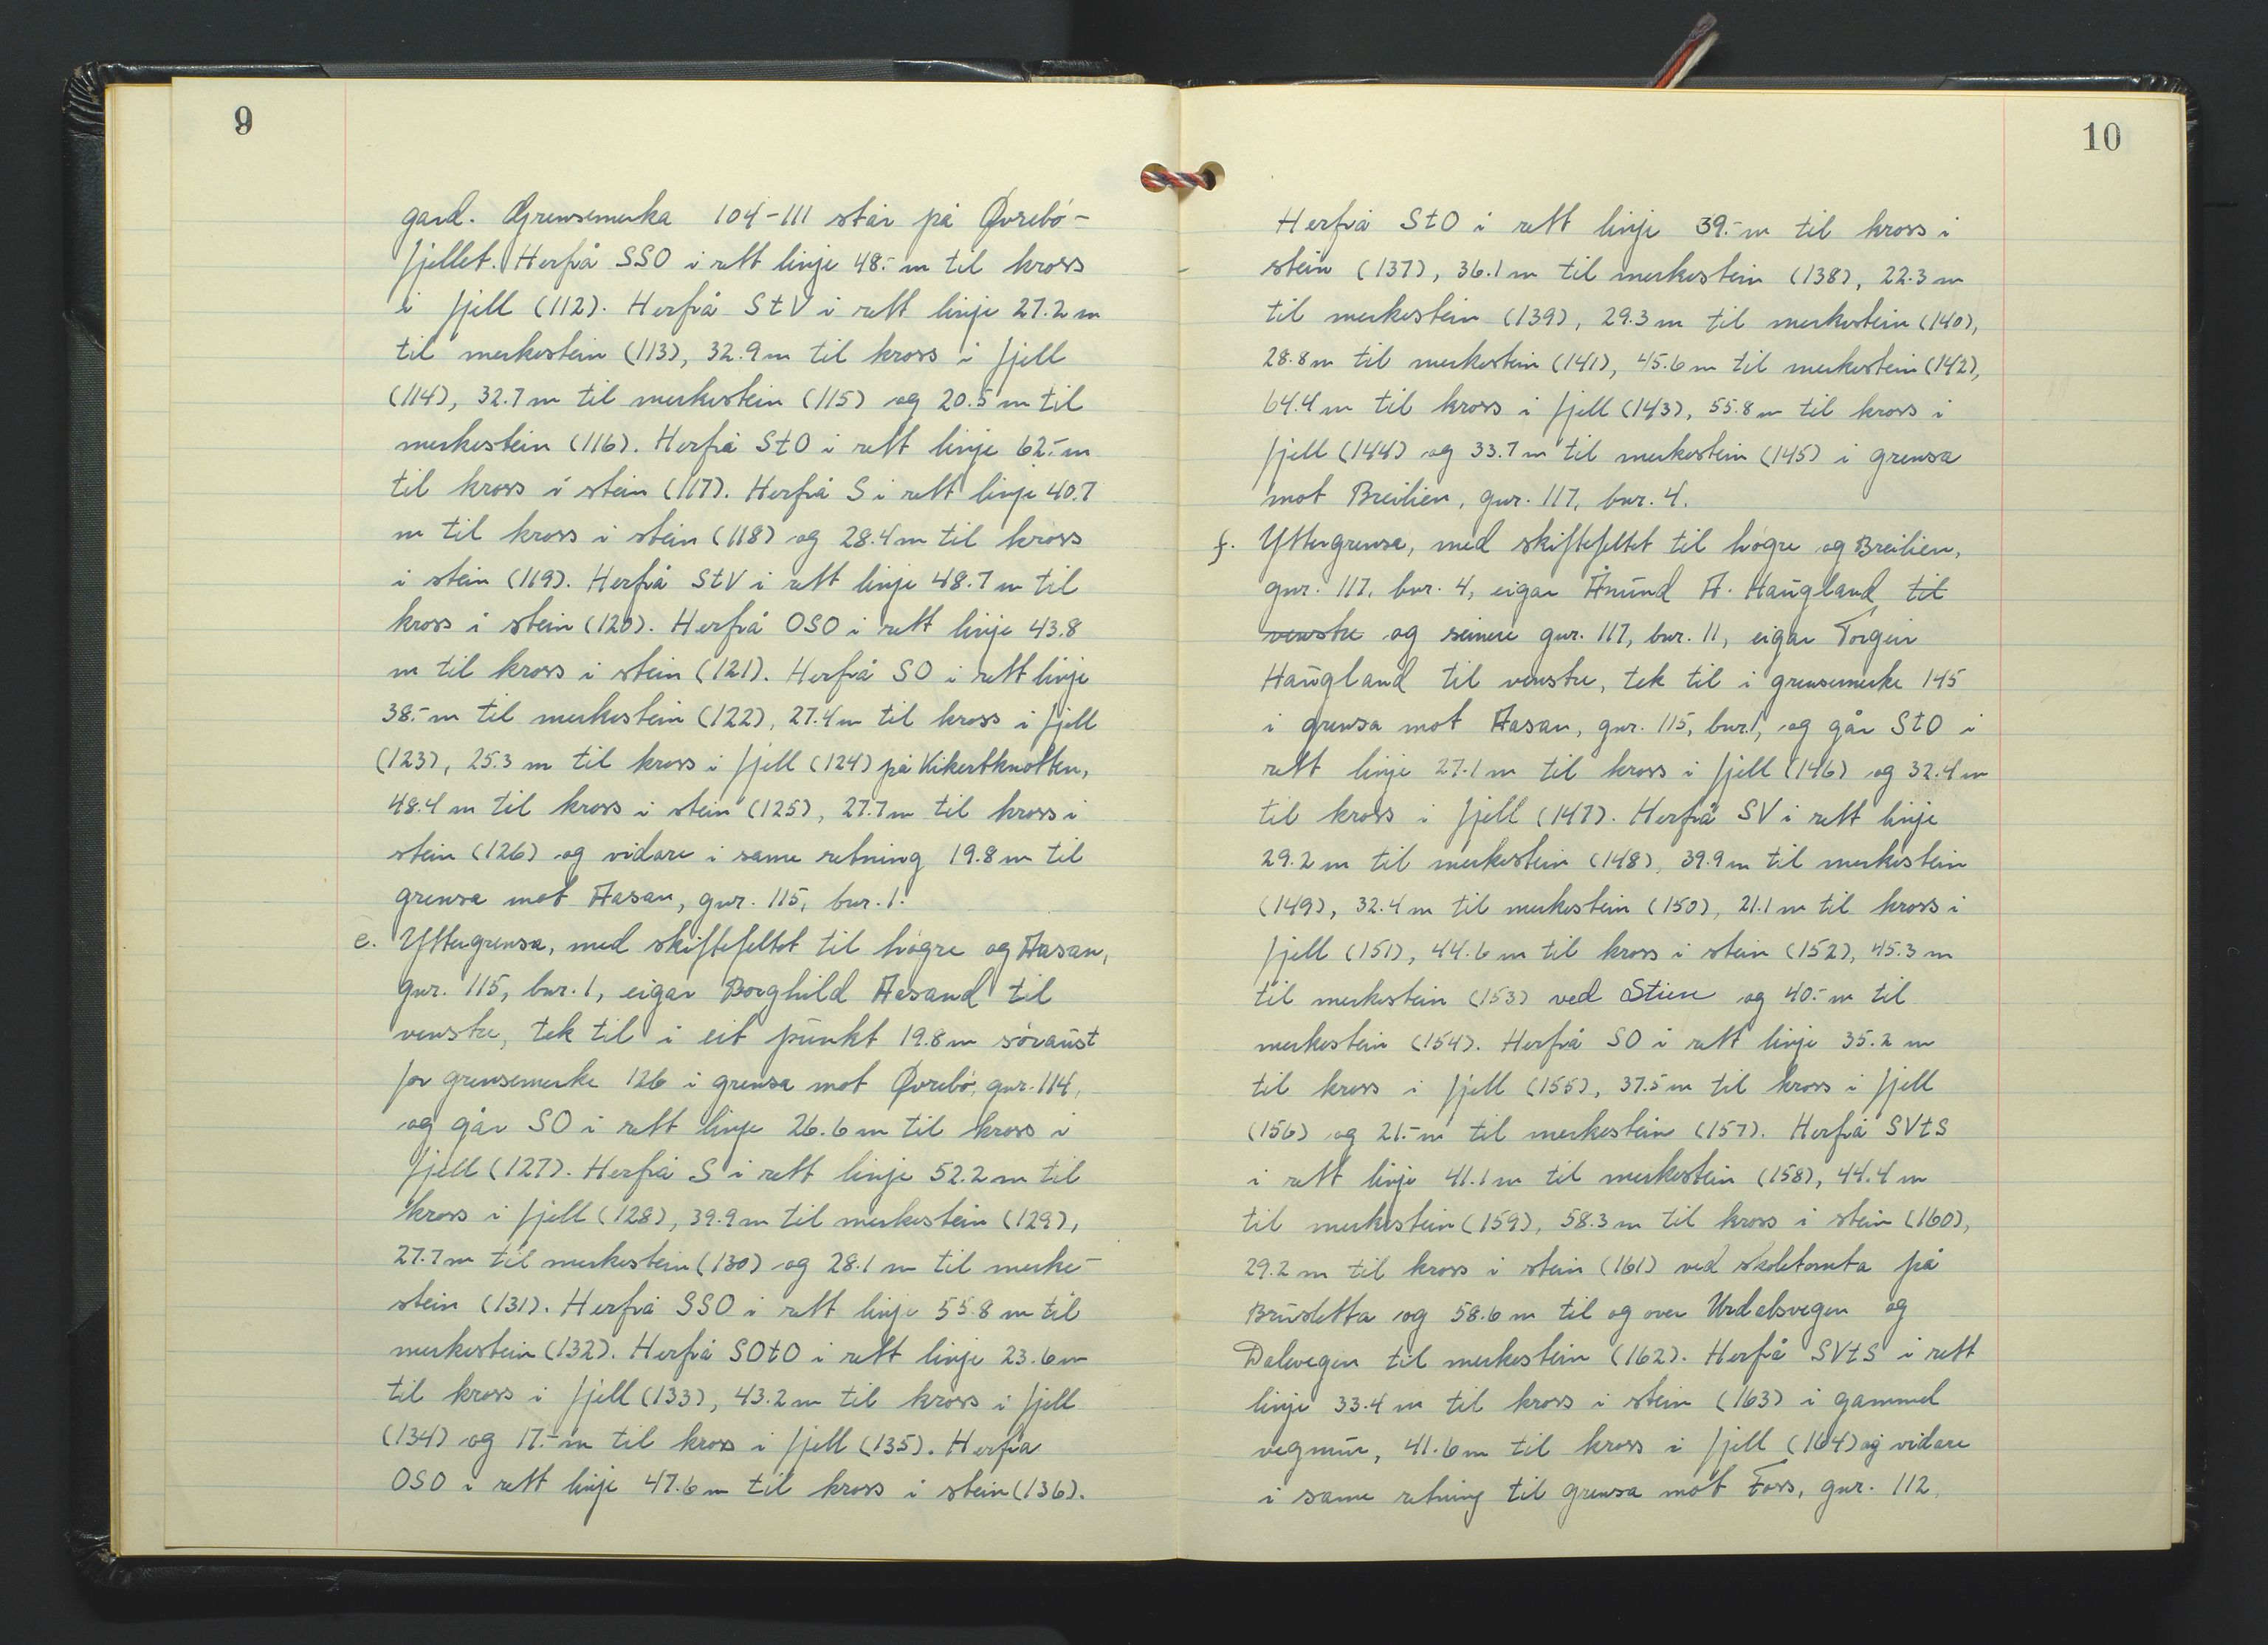 9
gard. Grensemerka 104-111 står på Øvrebø-
fjellet. Herfrå SSO i rett linje 48.- m til kross
i fjell (112). Herfrå StV i rett linje 27.2 m
til merkestein (113), 32.9 m til kross i fjell
(114), 32.7 m til merkestein (115) og 20.5 m til
merkestein (116). Herfrå StO i rett linje 62.- m
til kross i stein (117). Herfrå S i rett linje 40.7
m til kross i stein (118) og 28.4 m til kross
i stein (119). Herfrå StV i rett linje 48.7 m til
kross i stein (120). Herfrå OSO i rett linje 43.8
m til kross i stein (121). Herfrå SO i rett linje
38.- m til merkestein (122), 27.4 m til kross i fjell
(123), 25.3 m til kross i fjell (124) på Kikertknotten,
48.4 m til kross i stein (125), 27.7 m til kross i
stein (126) og vidare i same retning 19.8 m til
grensa mot Aasan, gnr. 115, bnr. 1.
e. Yttergrensa, med skiftefeltet til høgre og Aasan,
gnr. 115, bnr. 1, eigar Borghild Aasand til
venstre, tek til i eit punkt 19.8 m søraust
for grensemerke 126 i grensa mot Øvrebø, gnr. 114,
og går SO i rett linje 26.6 m til kross i
fjell (127). Herfrå S i rett linje 52.2 m til
kross i fjell (128), 39.9 m til merkestein (129),
27.7 m til merkestein (130) og 28.1 m til merke-
stein (131). Herfrå SSO i rett linje 55.8 m til
merkestein (132). Herfrå SOtO i rett linje 23.6 m
til kross i fjell (133), 43.2 m til kross i fjell
(134) og 17.- m til kross i fjell (135). Herfra
OSO i rett linje 47.6 m til kross i stein (136).
10
Herfrå StO i rett linje 39.- m til kross i
stein (137), 36.1 m til merkestein (138), 22.3 m
til merkestein (139), 29.3 m til merkestein (140),
28.8 m til merkestein (141), 45.6 m til merkestein (142),
64.4 m til kross i fjell (143), 55.8 m til kross i
fjell (144) og 33.7 m til merkestein (145) i grensa
mot Breilien, gnr. 117, bnr. 4.
f. Yttergrensa, med skiftefeltet til høgre og Breilien,
gnr. 117, bnr. 4, eigar Åmund A. Haugland til
venstre og seinere gnr. 117, bnr. 11, eigar Torgeir
Haugland til venstre, tek til i grensemerke 145
i grensa mot Aasan, gnr. 115, bnr. 1, og går StO i
rett linje 27.1 m til kross i fjell (146) og 32.4 m
til kross i fjell (147). Herfrå SV i rett linje
29.2 m til merkestein (148), 39.9 m til merkestein
(149), 32.4 m til merkestein (150), 21.1 m til kross i
fjell (151), 44.6 m til kross i stein (152), 45.3 m
til merkestein (153) ved Stien og 40.- m til
merkestein (154). Herfrå SO i rett linje 35.2 m
til kross i fjell (155), 37.5 m til kross i fjell
(156) og 21.- m til merkestein (157). Herfrå SVtS
i rett linje 41.1 m til merkestein (158), 44.4 m
til merkestein (159), 58.3 m til kross i stein (160),
29.2 m til kross i stein (161) ved skoletomta på
Brusletta og 58.6 m til og over Urdalsvegen og
Dalevegen til merkestein (162). Herfrå SVtS i rett
linje 33.4 m til kross i stein (163) i gammel
vegmur, 41.6 m til kross i fjell (164) og vidare
i same retning til grensa mot Foss, gnr. 112,